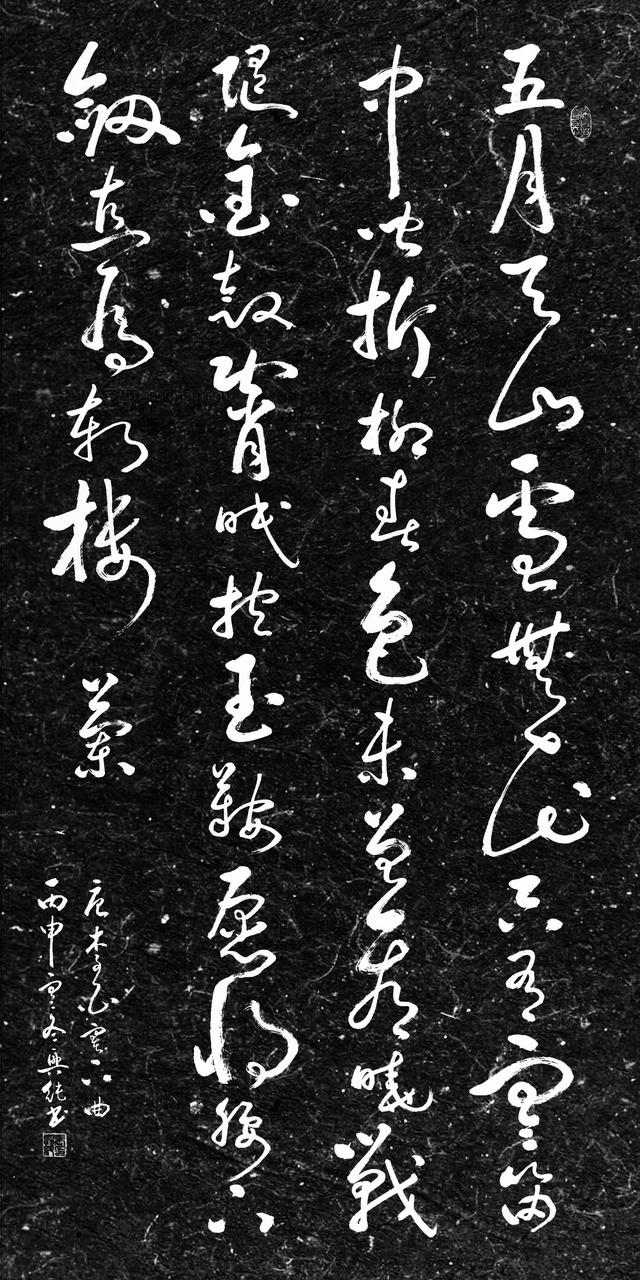 五月天山雪無花只有寒笛
中聞折柳春色未曾看曉戰
隨金鼓宵眠抱玉鞍愿將腰下
劍直為斬樓蘭
唐李白塞下曲
丙申寒冬興純书